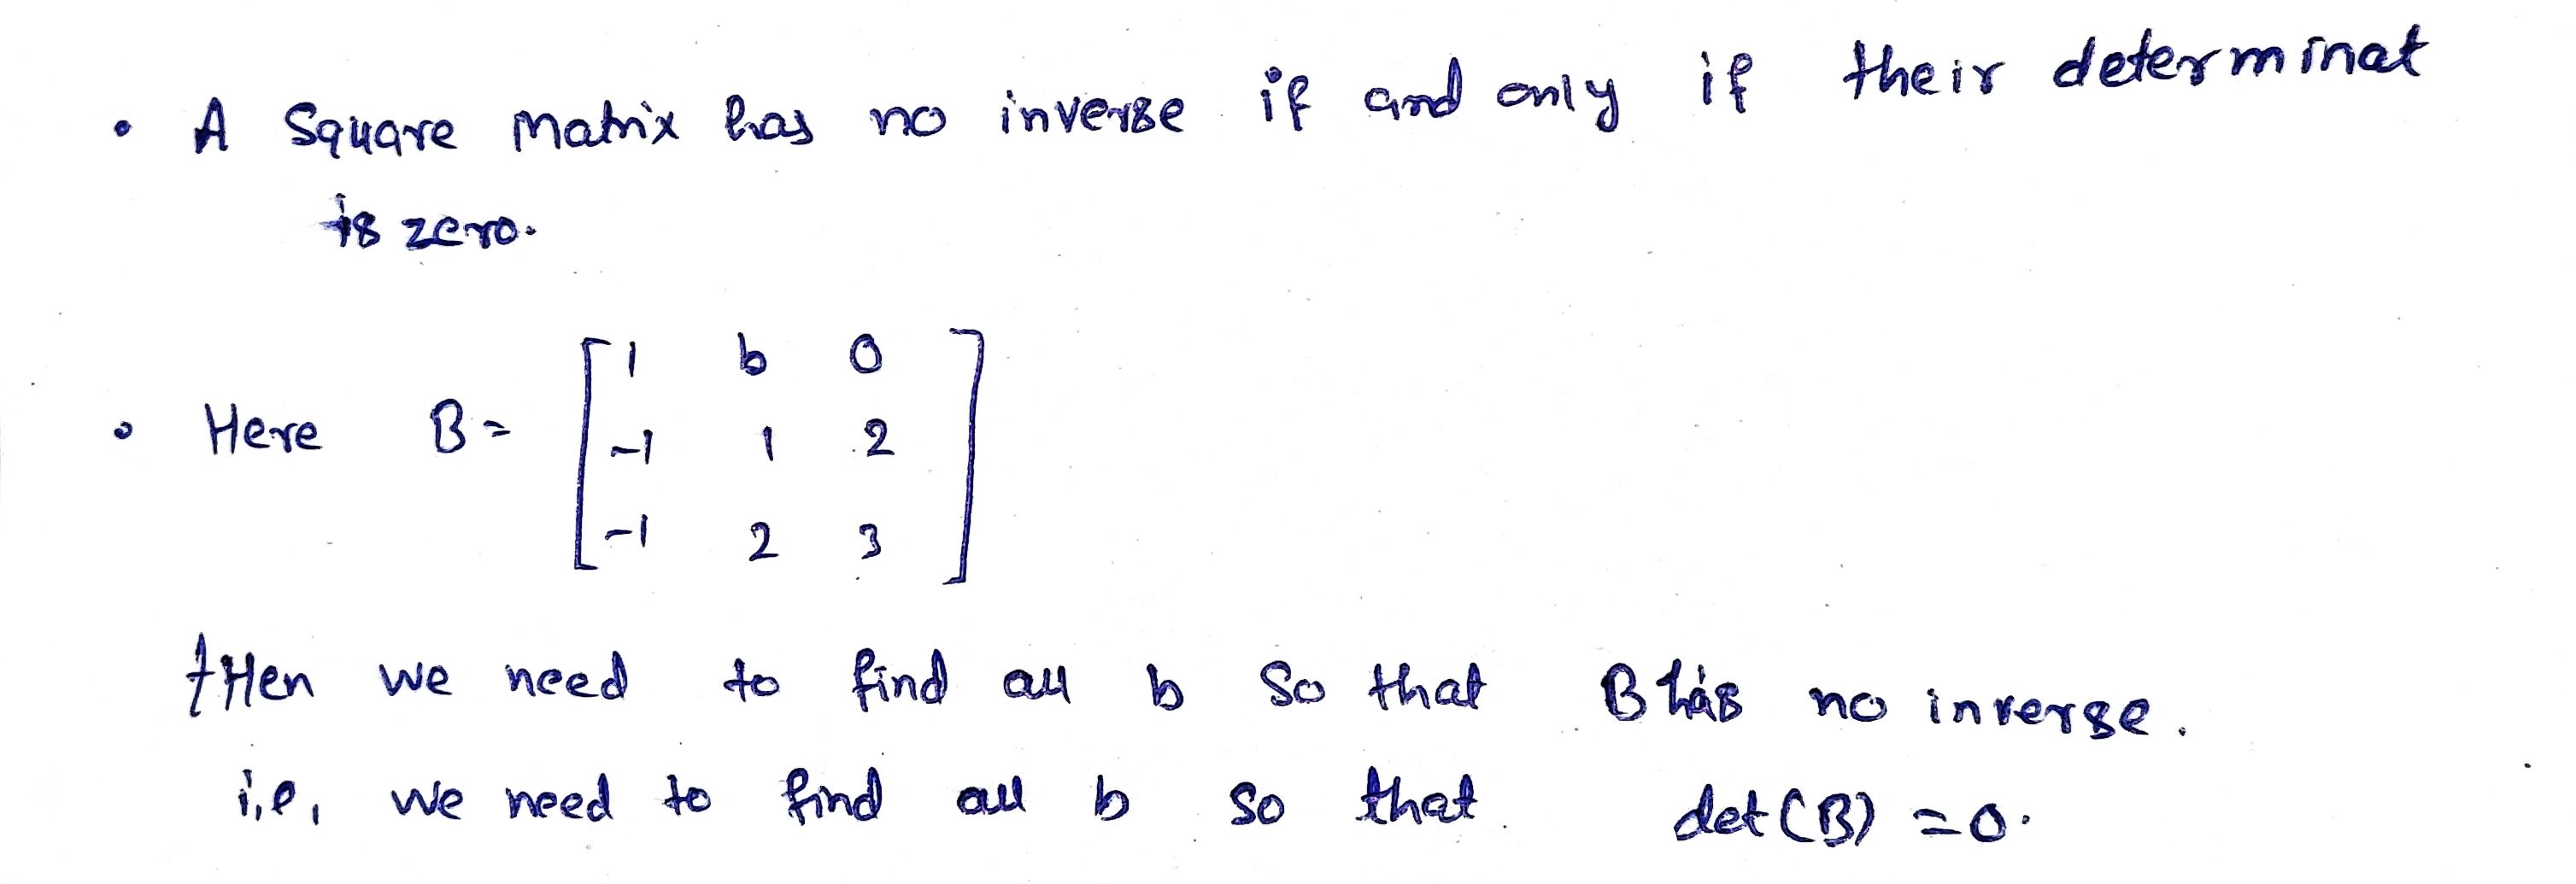 • A Square Matrix has no inverse if and only if their determinat
is zero.
• Here B = [ 1 b 0
-1 1 2
-1 2 3 ]
tHen we need to find all b So that B has no inverse.
i,e, we need to find all b so that det(B) = 0.